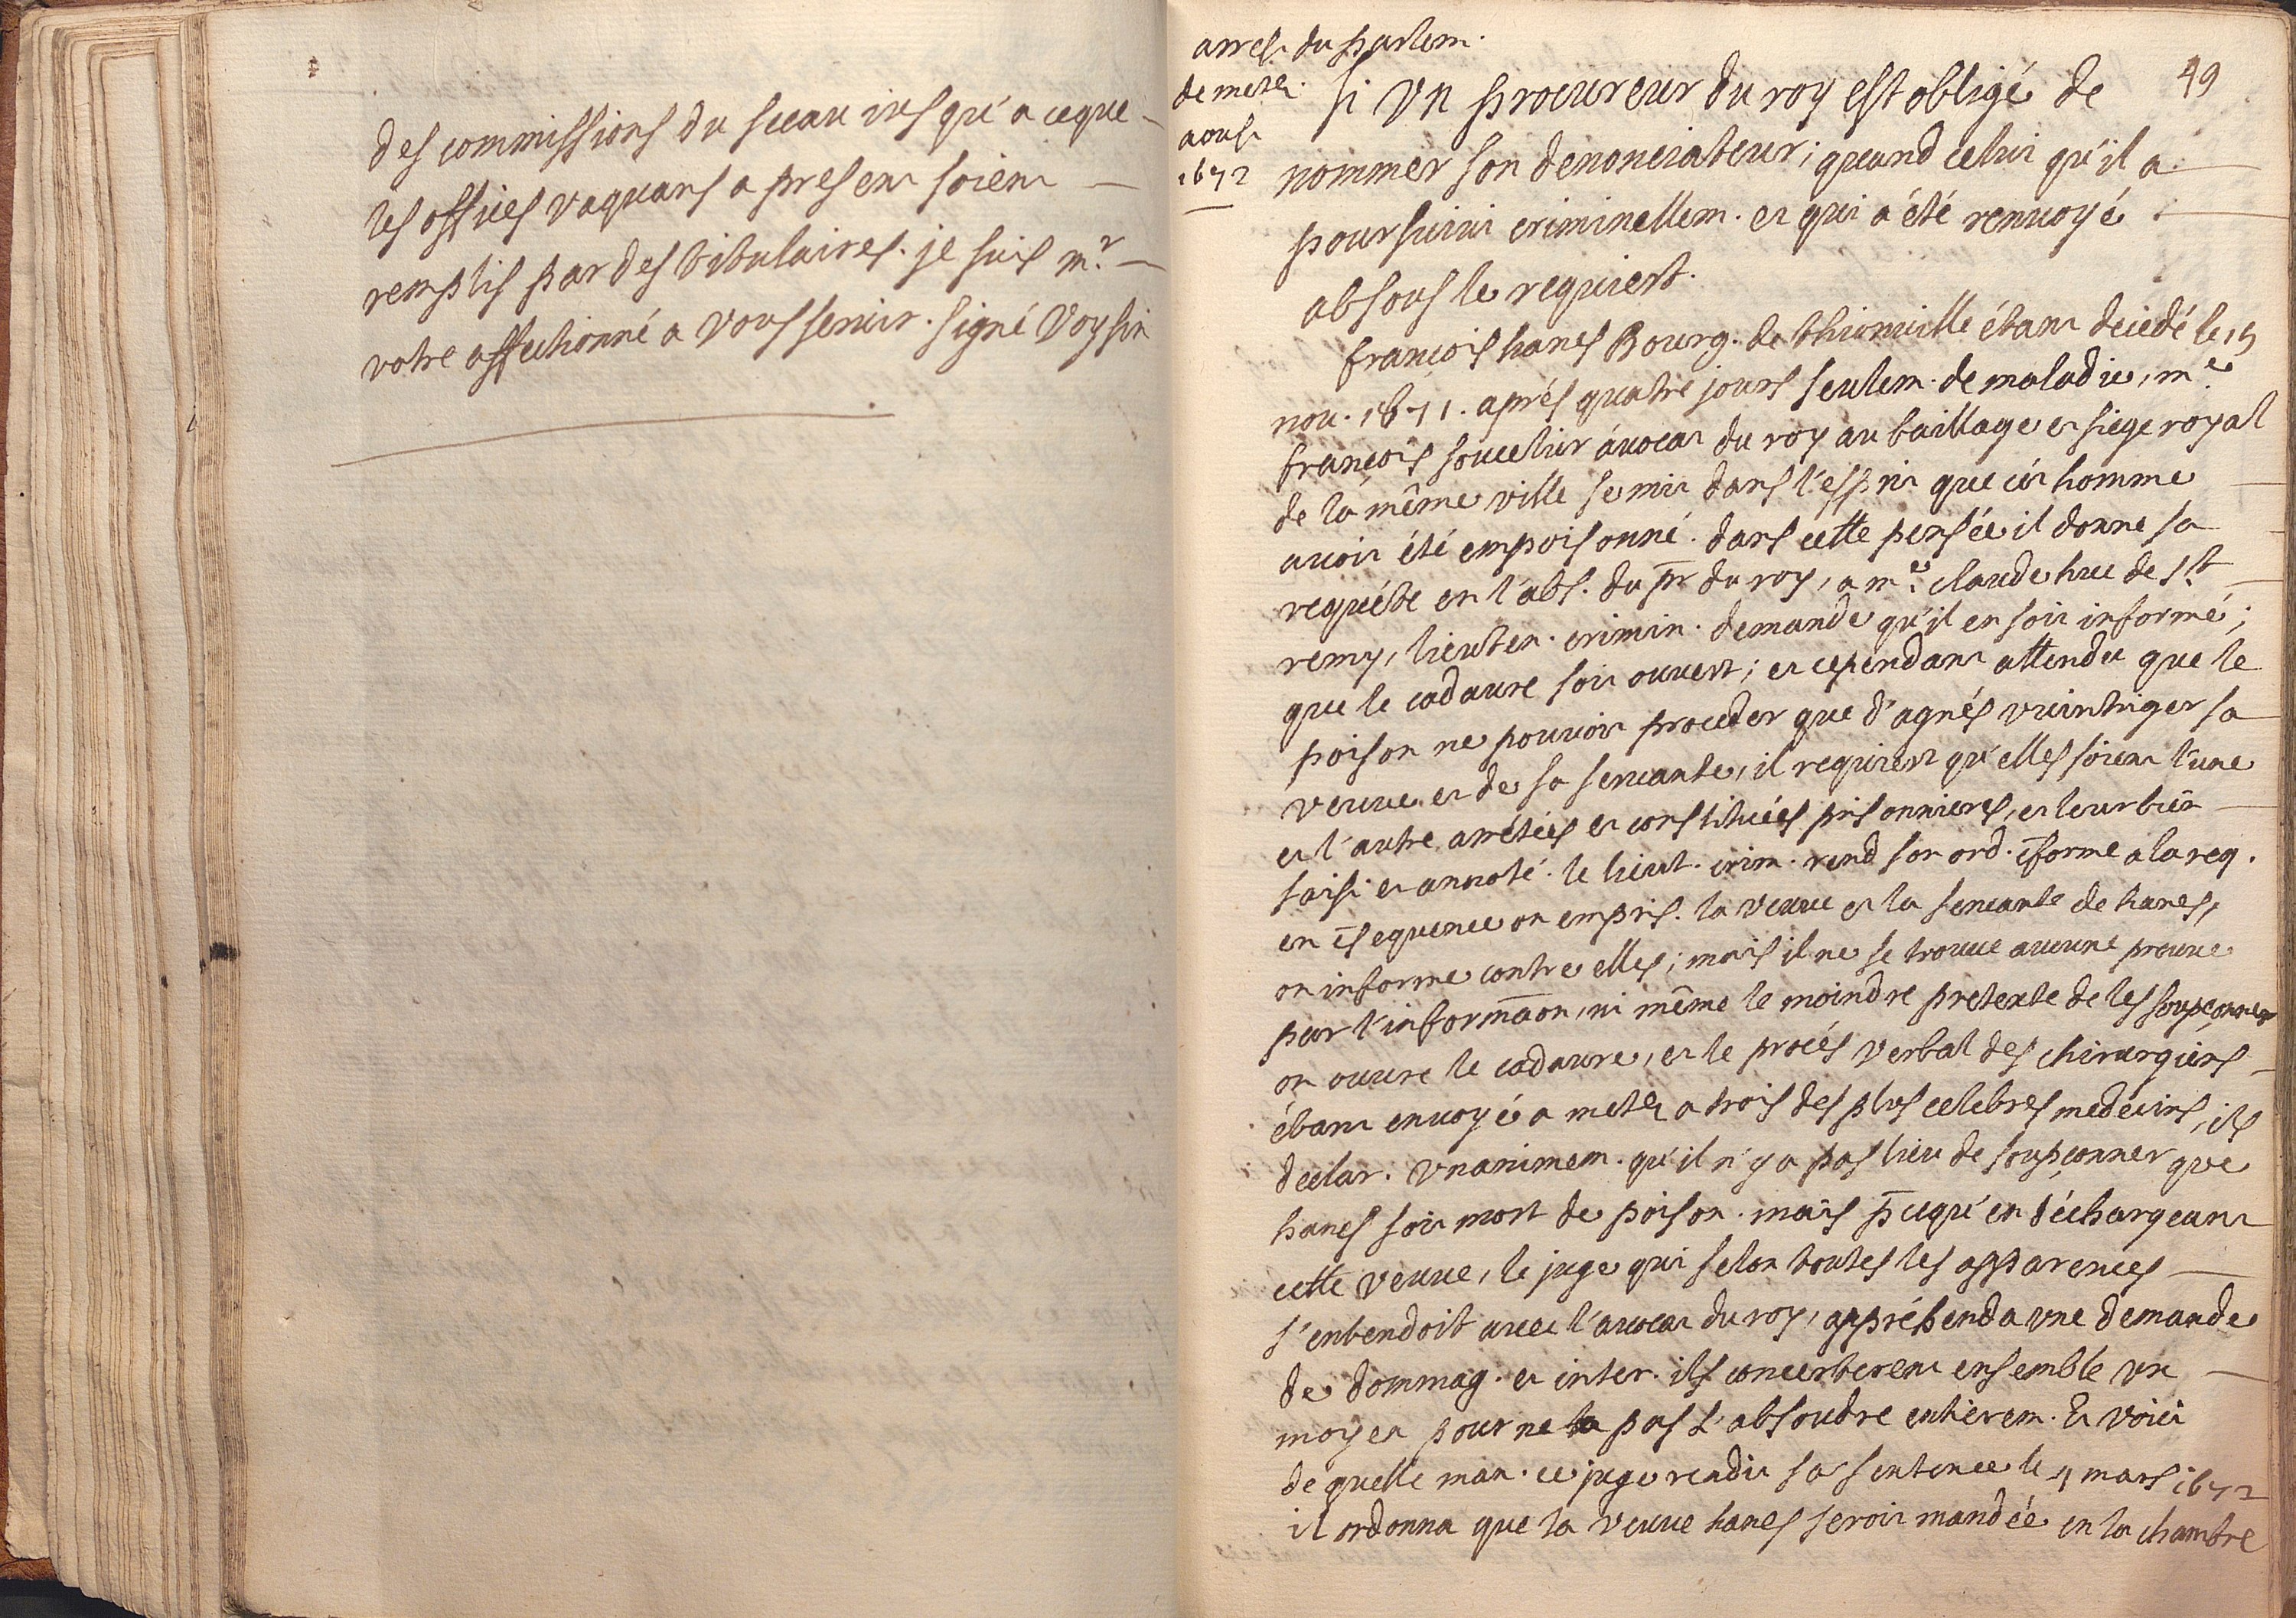 des commissions du sceau iusqu'a ceque
les offices vaquans a present soient
remplis par des titulaires. je suis mr.
votre affectionné a vous servir. signé Voysin
arrest du parlem.
de metz.
aoust
1672
49
si un procureur du roy est obligé de
nommer son denonciateur; quand celui qu'il a
poursuivi criminellem. et qui a été renvoyé
absous le requiert.
françois hanes Bourg. de thionville étant decedé le 15
nov. 1671. aprés quatre jours seulem. de maladie, me.
françois soucelier avocat du roy au baillage et siege royal
de la même ville se mit dans l'esprit que cét homme
avoit été empoisonné. dans cette pensée il donne sa
requéte en l'abs. du pr du roy, a me. claude hue de st
remy, lieuten. crimin. demande qu'il en soit informé;
que le cadavre soit ouvert; et cependant attendu que le
poison ne pouvoit proceder que d'agnés vuintriger sa
veuve et de sa servante, il requiert qu'elles soient l'une
et l'autre arrétées et constituées prisonnieres, et leur bien
saisi et annoté. le lieut. crim. rend son ord. c̄forme a la req.
en c̄sequence on empris. la veuve et la servante de hanes,
on informe contre elles; mais il ne se trouve aucune preuve
par l'informaōn, ni même le moindre pretexte de les soupçonner
on ouvre le cadavre, et le procés verbal des chirurgiens
étant envoyé a metz a trois des plus celebres medecins, ils
declar. unanimem. qu'il n'y a pas lieu de soupçonner que
hanes soit mort de poison. mais p̄cequ'en déchargeant
cette veuve, le juge qui selon toutes les apparences
s'entendoit avec l'avocat du roy, appréhenda une demande
de dommag. et inter. ils concerterent ensemble un
moyen pour ne pas l'absoudre entierem. Et voici
de quelle man. ce juge rendit sa sentence le 4 mars 1672
il ordonna que la veuve hanes seroit mandée en la chambre